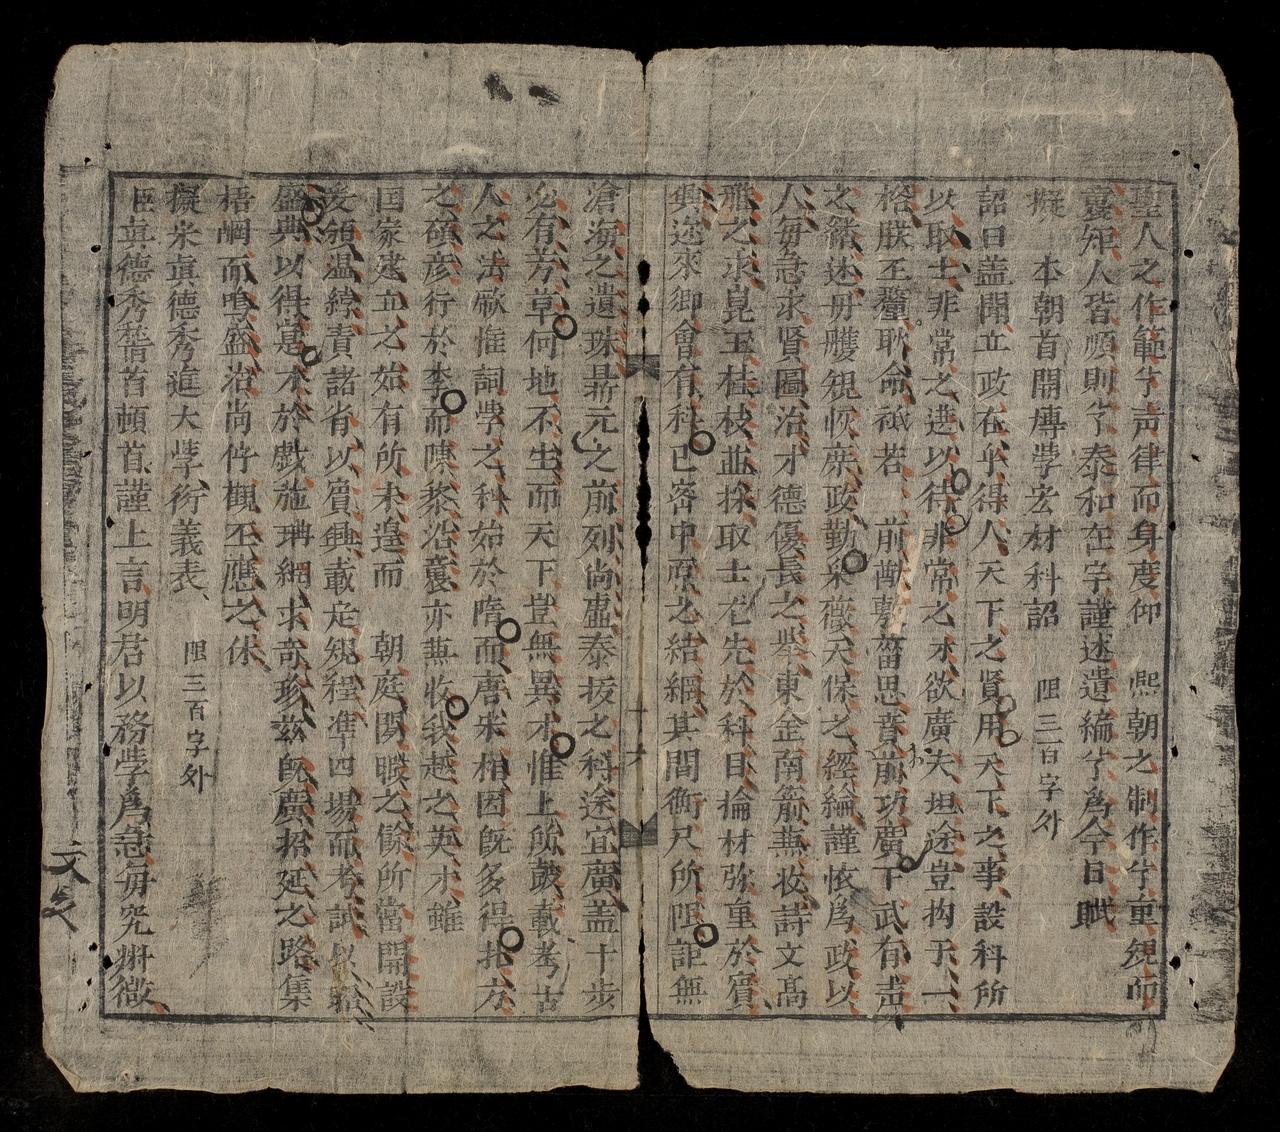 聖人之作範兮声律而身度仰　熙朝之制作兮重䂓而
襲矩人皆順則兮泰和在宇謹述遺編兮為今日賦
擬　本朝首開博學宏材科詔　限三百字外
詔曰盖聞立政在乎得人天下之賢用天下之事設科所
以取士非常之選以待非常之才欲廣夫坦途豈拘于一
格朕丕釐耿命祗若　前猷敷菑思賁前功廣下武有声
之緒述毋䂓恢庶政勤采薇天保之經綸謹恠為政以
人每急求賢圖治才德優長之擧東金南箭兼收詩文高
雅之求崑玉桂枝並採取士尤先於科目掄材弥重於賓
興迩來鄉會有科已密中原之結網其間衡尺所限詎無
滄海之遺珠鼎元之前列尚虛泰拔之科途宜廣盖十步
必有芳草何地不生而天下豈無異才惟上所鼓載考古
人之法厥惟詞學之科始於隋而唐宋相因既多得扎方
之碩彥行於李而陳黎沿襲亦兼收我越之英才雖
囯家建立之始有所未遑而　朝庭閑暇之餘所當開設
爰頒温綍責諸省以賓興載定䂓程準四場而考試以
盛典以得寔才於戲葩珊網求奇珍茲既廣招延之路集
梧峒而鳴盛治尚佇觀丕應之休
擬宋眞德秀進大學衍義表　限三百字外
臣眞德秀稽首頓首謹上言明君以務學為急毋究淵微